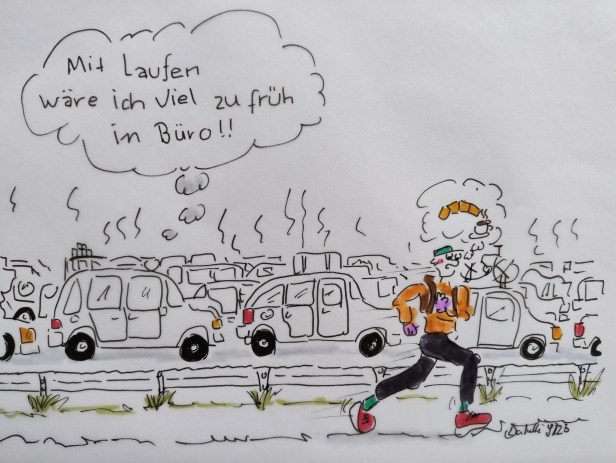 Mit Laufen
wäre ich viel zu früh
im Büro!!
9/23